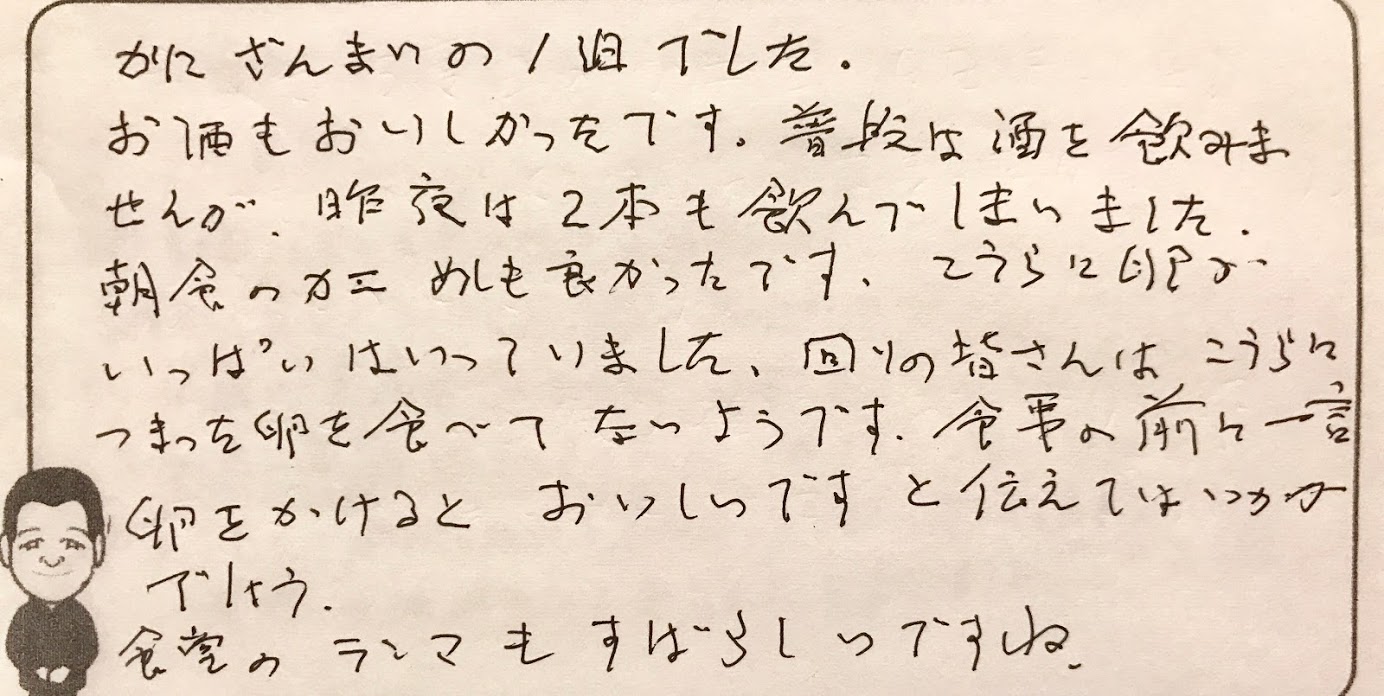 かにざんまいの1泊でした.
お酒もおいしかったです.普段は酒を飲みま
せんが.昨夜は2本も飲んでしまいました.
朝食のカニめしも良かったです、こうらに卵が
いっぱいはいっていました、回りの皆さんはこうらに
つまった卵を食べてないようです.食事の前に一言
卵をかけるとおいしいですと伝えてはいかが
でしょう.
食堂のランマもすばらしいですね.